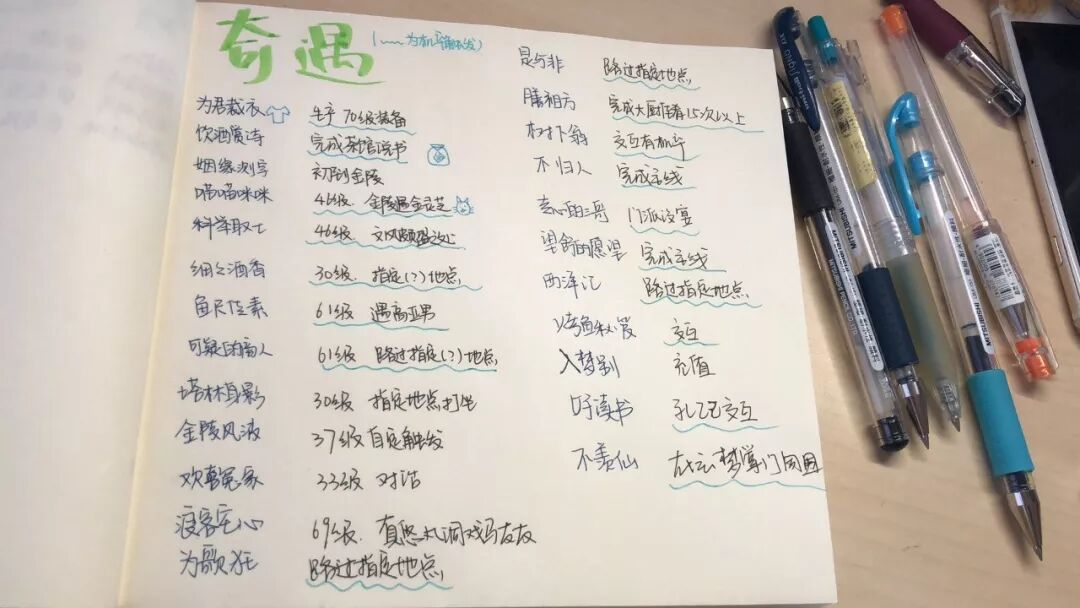 奇遇
(﹏为机率触发)
为君裁衣 生产70级装备
饮酒赏诗 完成茶馆说书
姻缘测字 初到金陵
喵喵咪咪 46级. 金陵遇金灵芝
科举取士 46级. 文风颇盛之处
细々酒香 30级. 指定(?)地点
鱼尺住素 61级 遇高亚男
可疑的商人 61级 路过指定(?)地点
塔林身影 30级 指定地点打坐
金陵风波 37级 自定触发
欢喜冤家 33级 对话
渡客宅心 69级. 有 友友
为歌狂 路过指定地点
是与非 路过指定地点
膳相方 完成大厨任务15次以上
树下翁 交互有机率
不归人 完成主线
门派设宴
望舒的愿望 完成主线
西洋记 路过指定地点
烤鱼秘笈 交互
入梦别 充值
好读书 孔乙己交互
不羡仙 在云梦掌门周围